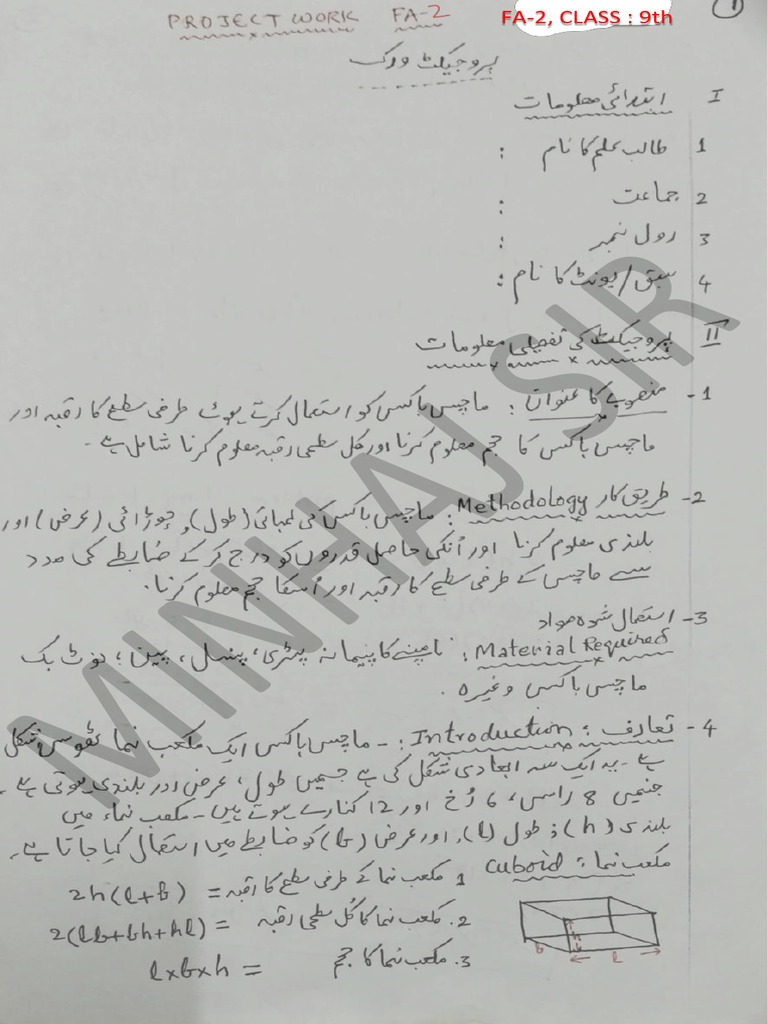 PROJECT WORK FA-2
FA-2, CLASS : 9th
1
پروجیکٹ ورک
I ابتدائی معلومات
1 طالب علم کا نام :
2 جماعت :
3 رول نمبر :
4 سبق/یونٹ کا نام :
II پروجیکٹ کی تفصیلی معلومات
1- منصوبے کا عنوان : ماچس باکس کو استعمال کرتے ہوئے طرفی سطح کا رقبہ اور
ماچس باکس کا حجم معلوم کرنا اور کل سطحی رقبہ معلوم کرنا شامل ہے۔
2- طریق کار Methodology : ماچس باکس کی لمبائی (طول)، چوڑائی (عرض) اور
بلندی معلوم کرنا اور اُنکی حاصل قدروں کو درج کر کے ضابطے کی مدد
سے ماچس کے طرفی سطح کا رقبہ اور اُسکا حجم معلوم کرنا۔
3- استعمال شدہ مواد
Material Required : ناپنے کا پیمانہ پٹری، پنسل، پین، نوٹ بک
ماچس باکس وغیرہ۔
4- تعارف : Introduction :- ماچس باکس ایک مکعب نما ٹھوس شکل
ہے۔ یہ ایک سہ ابعادی شکل کی ہے جسمیں طول، عرض اور بلندی ہوتی ہے۔
جنمیں 8 راس، 6 رُخ اور 12 کنارے ہوتے ہیں۔ مکعب نماء میں
بلندی (h) ; طول (l)، اور عرض (b) کو ضابطے میں استعمال کیا جاتا ہے۔
مکعب نما : Cuboid
1 مکعب نما کے طرفی سطح کا رقبہ = 2h(l+b)
2. مکعب نما کا کُل سطحی رقبہ = 2(lb+bh+hl)
3. مکعب نما کا حجم = l×b×h
b h l
MINHAJ SIR